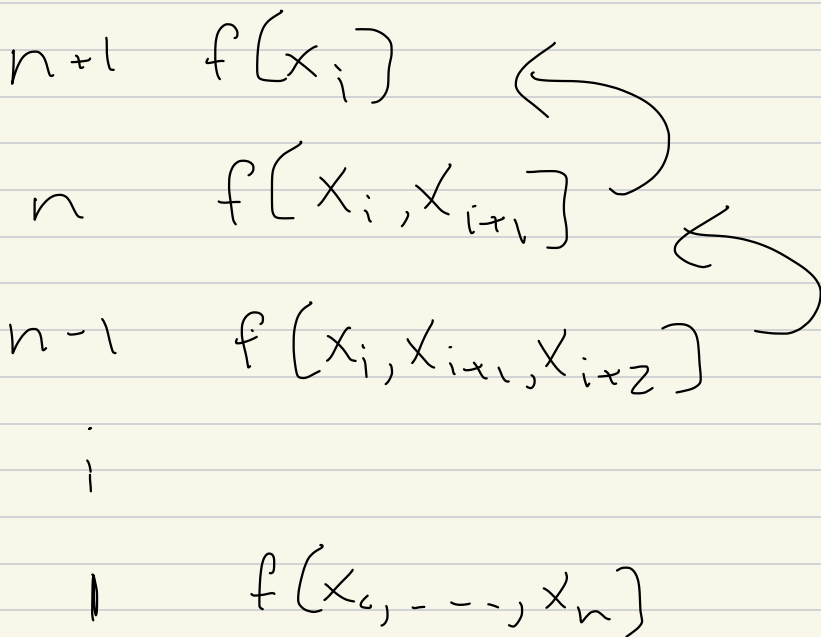 n+1 f[x_i]
n f[x_i, x_{i+1}]
n-1 f[x_i, x_{i+1}, x_{i+2}]
⋮
1 f[x_0, ----, x_n]